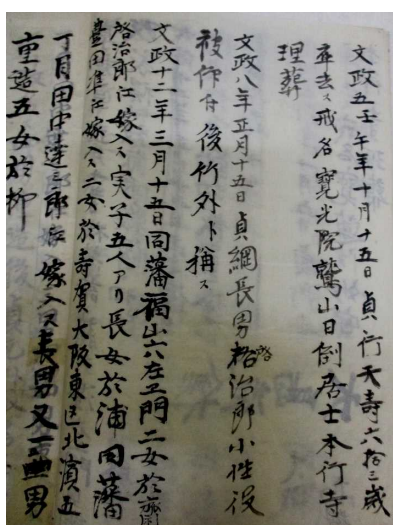 文政五壬午年十月十五日貞行天壽六拾三歳
卒去ス戒名寛光院鷲山日到居士本行寺
埋葬
文政八年正月十五日貞綱長男啓治郎小性役
被仰付後竹外ト稱ス
文政十二年三月十五日同藩福山六左エ門二女於
啓治郎江嫁入ス実子五人アリ長女於浦同藩
豊田隼江嫁入ス二女於寿賀大阪東区北濱五
丁目田中達三郎江嫁入ス長男又一郎二男
重造五女於柳